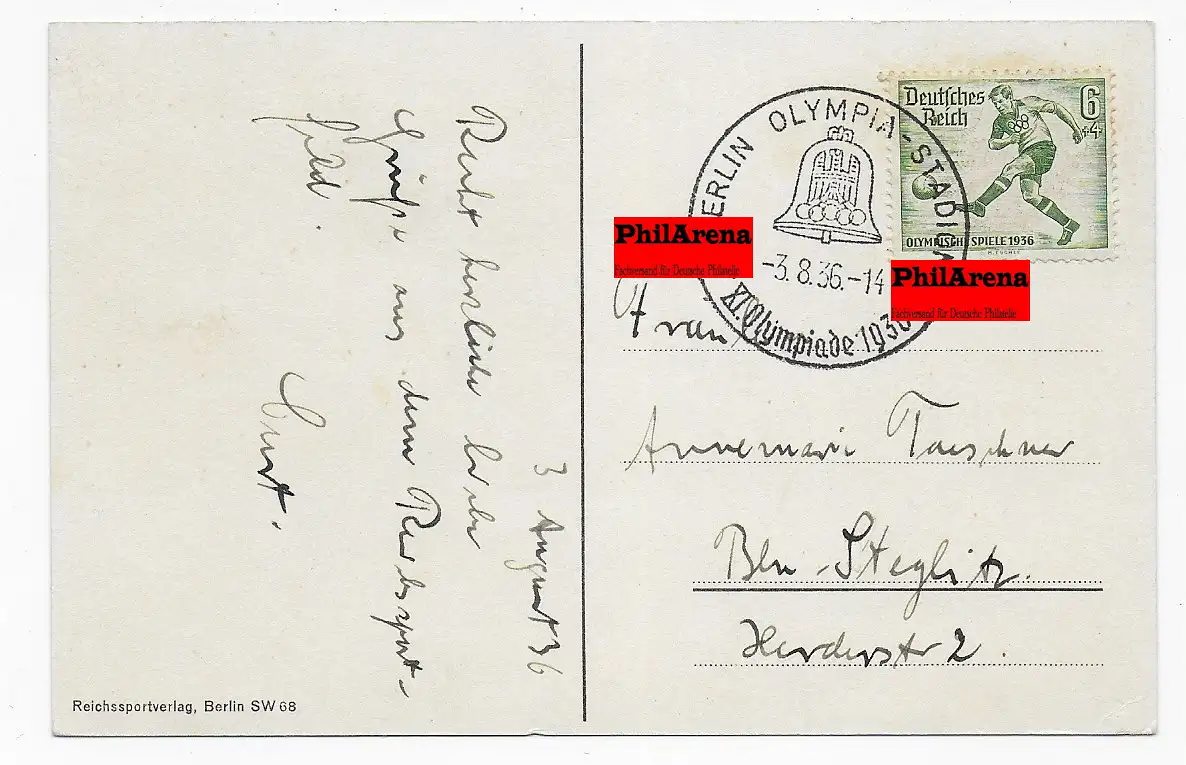 3 August 36
Recht herzliche liebe
Grüße aus dem Reichssport-
feld.
Curt.
Reichssportverlag, Berlin SW 68
BERLIN OLYMPIA-STADION
-3.8.36.-14
XI. Olympiade 1936
Deutsches
Reich
6
+4
OLYMPISCHE SPIELE 1936
M. ESCHLE
PhilArena
Fachversand für Deutsche Philatelie
PhilArena
Fachversand für Deutsche Philatelie
Frau
Annemarie Taeschner
Bln-Steglitz.
Herderstr 2.